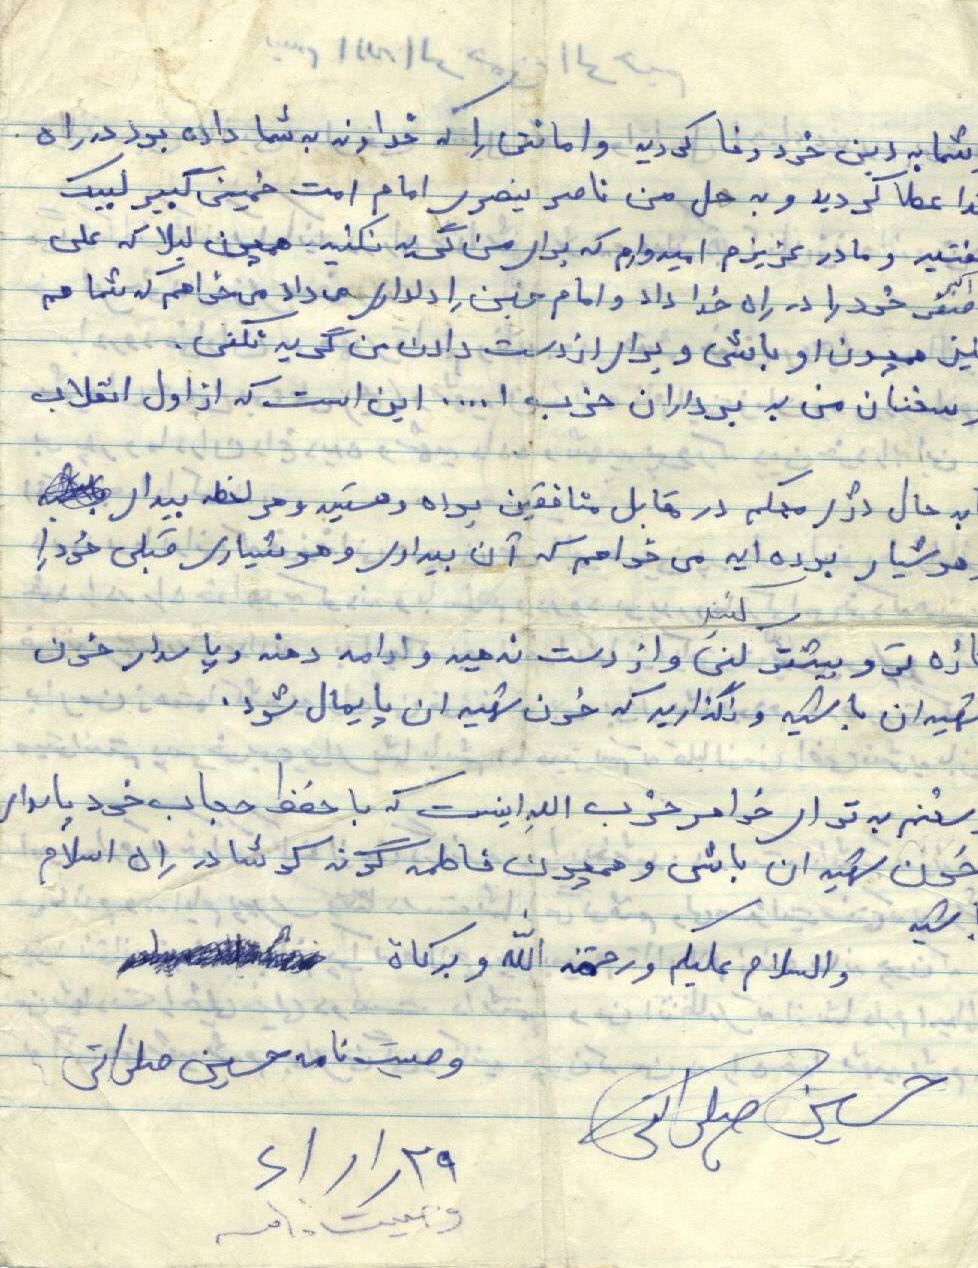 شما به دین خود وفا کردید و امانتی را که خداوند به شما داده بود در راه
خدا عطا کردید و به هل من ناصر ینصری امام امت خمینی کبیر لبیک
گفتید و مادر عزیزم امیدوارم که برای من گریه نکنید همچون لیلا که علی
اکبر خود را در راه خدا داد و امام حسین را دلداری می داد می خواهم که شما هم
این همچون او باشی و برای از دست دادن من گریه نکنی.
سخنان من به برداران حزب ا.... این است که از اول انقلاب
به حال دژی محکم در مقابل منافقین بوده و هستید و هر لحظه بیدار
هوشیار بوده اید می خواهم که آن بیداری و هوشیاری قبلی خود را
کنید
تازه تر و بیشتر کنی و از دست ندهید و ادامه دهند و پاسدار خون
شهیدان باشید و نگذارید که خون شهیدان پایمال شود.
سخنم به تو ای خواهر حزب الله اینست که با حفظ حجاب خود پاسدار
خون شهیدان باشی و همچون فاطمه گونه کوشا در راه اسلام
باشید
والسلام علیکم و رحمته الله و برکاة
وصیت نامه حسین صلواتی
حسین صلواتی
۲۹/۱/۶۱
وصیت نامه